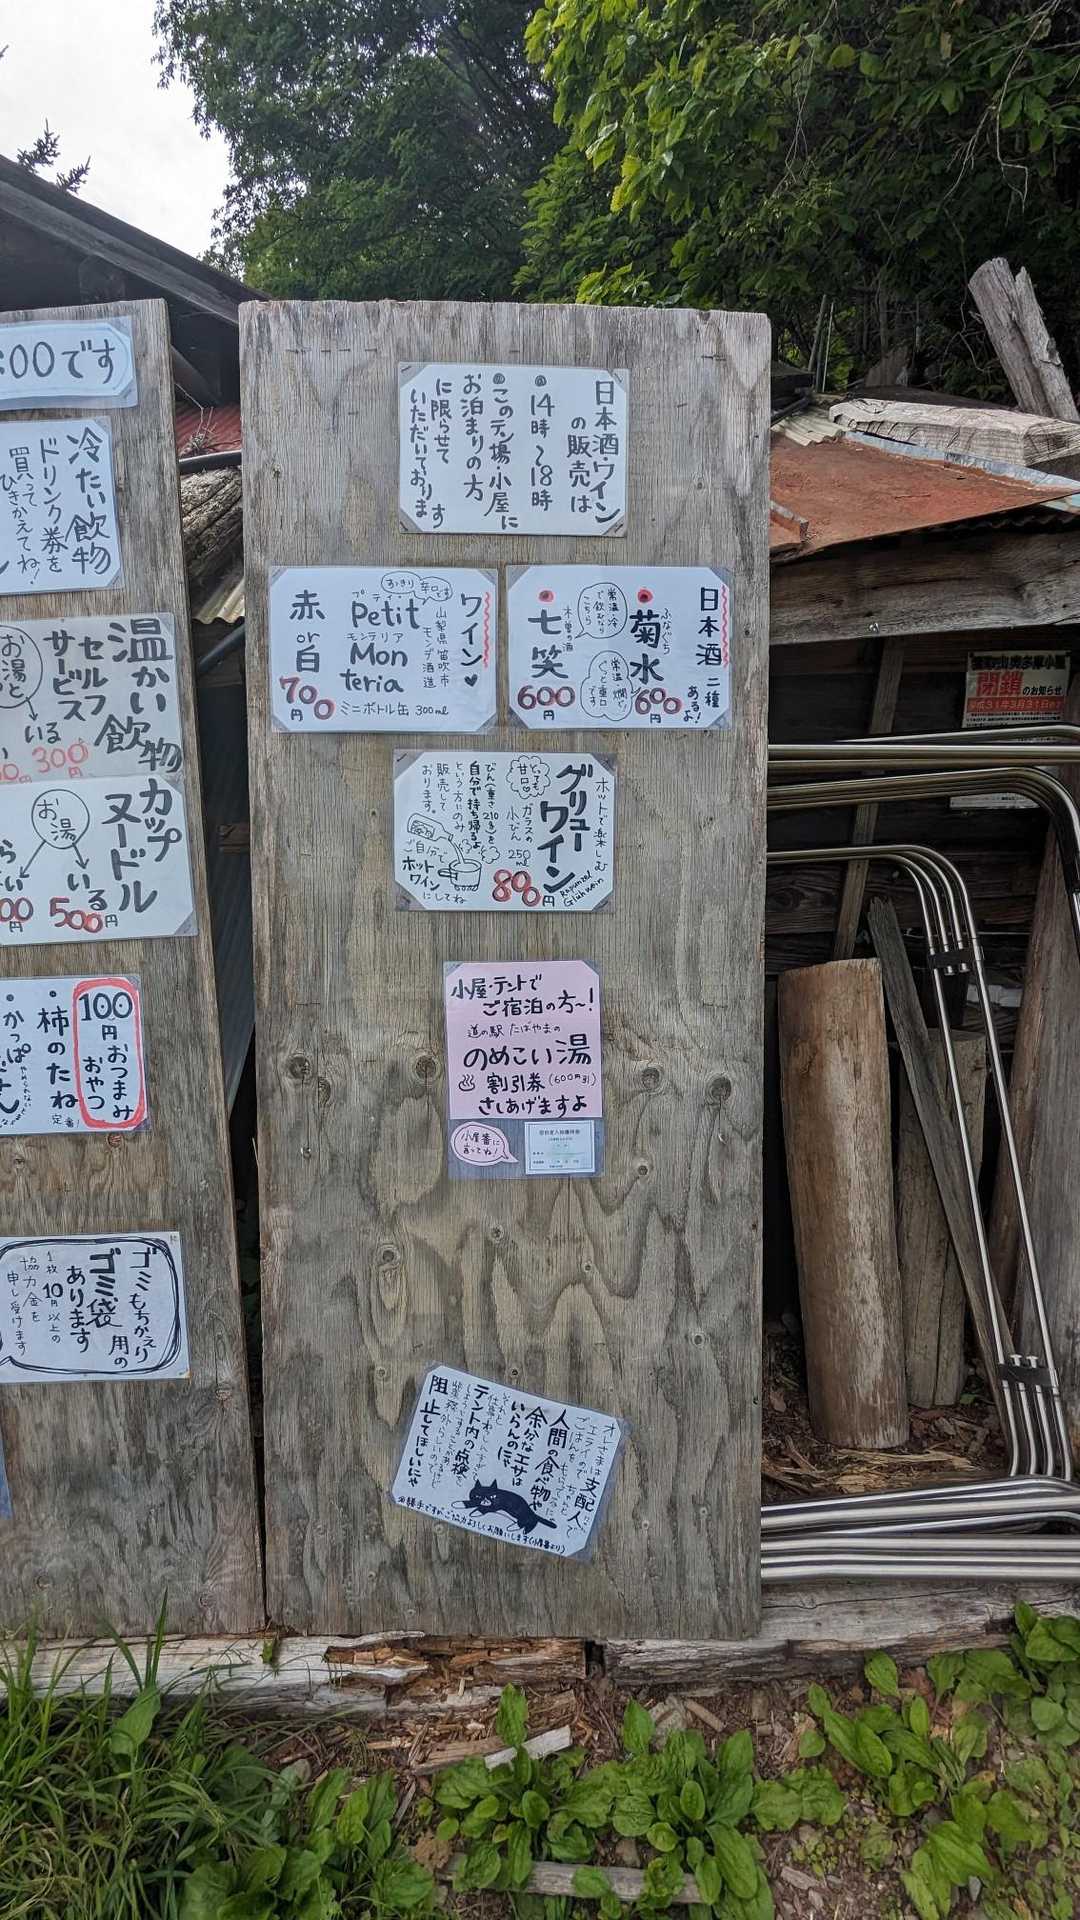 :00です
冷たい飲物
ドリンク券を
買って
ひきかえてね!
温かい飲物
セルフ
サービス
お湯と
いる
300円
カップ
ヌードル
お湯
いる
500円
00円
100円おつまみ
おやつ
・柿のたね
定番!
・かっぱ
ゴミもちかえり
用の
ゴミ袋
あります
1枚10円以上の
協力金を
申し受けます
日本酒・ワイン
の販売は
●14時〜18時
●このテン場・小屋に
お泊まりの方
に限らせて
いただいております
ワイン♥
山梨県笛吹市
モンデ酒造
すっきり辛口です
プティ
Petit
モンテリア
Mon
teria
ミニボトル缶 300ml
赤
or
白
700円
日本酒 二種
あるよ!
ふなぐち
●菊水
600円
常温・冷
で飲むなり
こちら
木曽の酒
●七笑
600円
常温・燗で
ぐっと重口
です
ホットで楽しむ
グリュー
ワイン
Rapunzel
Glühwein
とっても
甘口♡
ガラスの
小びん
250ml
800円
びん(重さ210g)を
自分で持ち帰るよ
という方にのみ
販売して
おります。
ご自分で
ホット
ワイン
にしてね
小屋・テントで
ご宿泊の方〜!
道の駅 たばやまの
のめこい湯
♨ 割引券(600円引)
さしあげますよ
小屋番に
言ってね!
オレさまは支配人で
エライので
ごはんを
もらって
人間の食べ物や
余分なエサは
いらんのにゃ
テント内の点検
阻止してほしいにゃ
※勝手ですがご協力よろしくお願いします(小屋番より)
閉鎖のお知らせ
平成31年3月31日